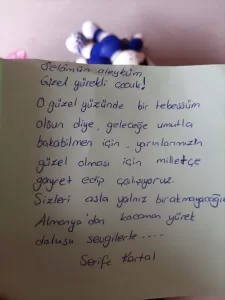 Selâmün aleyküm
Güzel yürekli çocuk!
O güzel yüzünde bir tebessüm
olsun diye, geleceğe umutla
bakabilmen için, yarınlarınızın
güzel olması için milletçe
gayret edip çalışıyoruz.
Sizleri asla yalnız bırakmayacağız
Almanya'dan kocaman yürek
dolusu sevgilerle....
Şerife Kartal